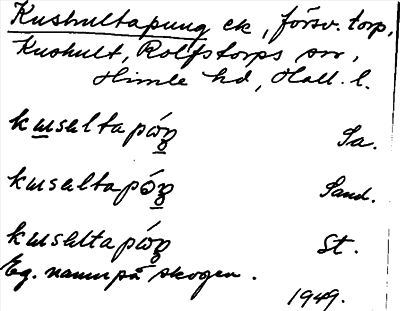 Kushultapung ek, försv. torp,
Kushult, Rolfstorps sn,
Himle hd, Hall. l.
Sa.
Sand.
St.
Eg. namn på skogen.
1949.